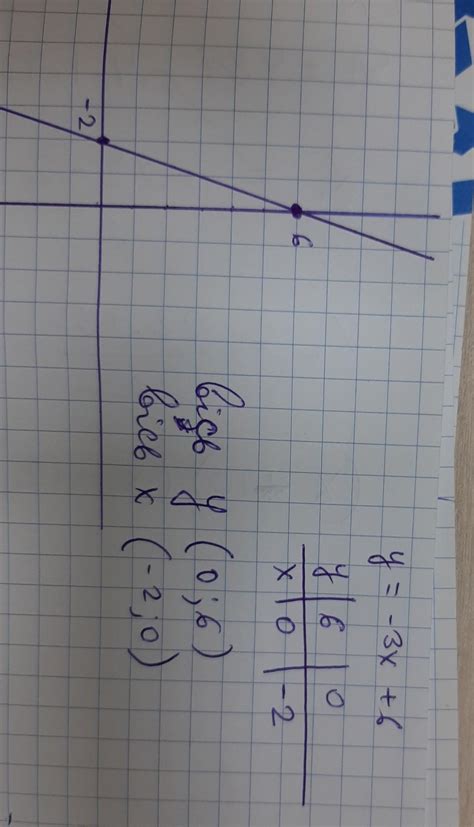 6
-2
y = -3x + 6
y 6 0
x 0 -2
вісь y (0; 6)
вісь x (-2; 0)